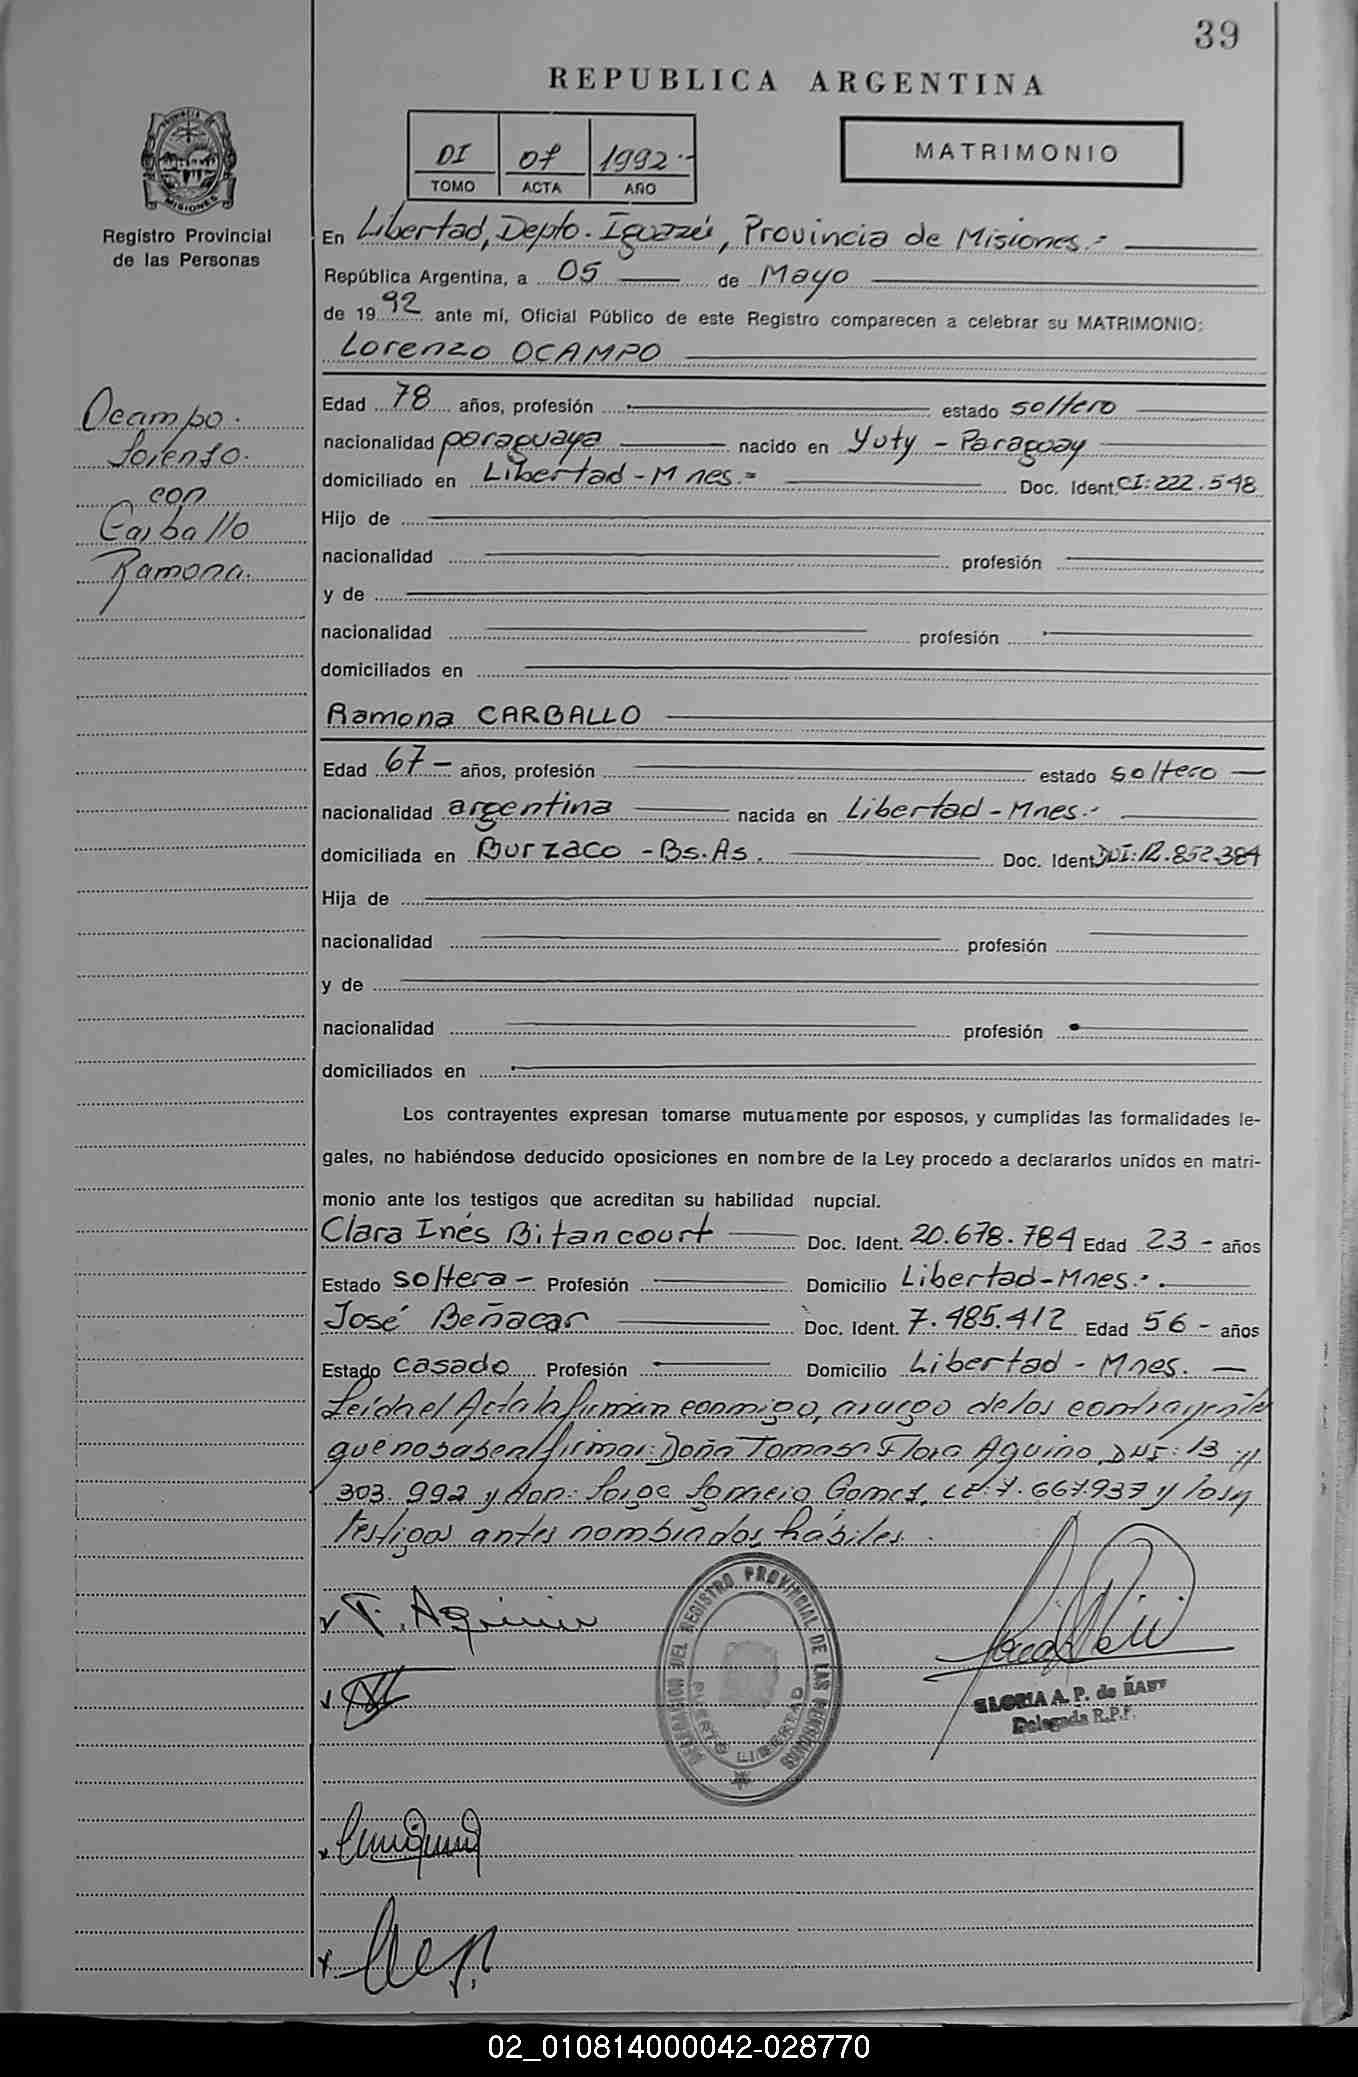 39
REPUBLICA ARGENTINA
MATRIMONIO
DI 07 1992
TOMO ACTA AÑO
MISIONES
Registro Provincial
de las Personas
En Libertad, Depto. Iguazú, Provincia de Misiones.-
República Argentina, a 05 de Mayo
de 1992 ante mí, Oficial Público de este Registro comparecen a celebrar su MATRIMONIO:
Lorenzo OCAMPO
Ocampo.
Lorenzo.
con
Carballo
Ramona.
Edad 78 años, profesión estado soltero
nacionalidad paraguaya nacido en Yuty - Paraguay
domiciliado en Libertad - Mnes.= Doc. Ident. CI: 222.548
Hijo de
nacionalidad profesión
y de
nacionalidad profesión
domiciliados en
Ramona CARBALLO
Edad 67 - años, profesión estado soltero
nacionalidad argentina nacida en Libertad - Mnes.-
domiciliada en Burzaco - Bs.As. Doc. Ident DNI: 12.852.384
Hija de
nacionalidad profesión
y de
nacionalidad profesión
domiciliados en
Los contrayentes expresan tomarse mutuamente por esposos, y cumplidas las formalidades le-
gales, no habiéndose deducido oposiciones en nombre de la Ley procedo a declararlos unidos en matri-
monio ante los testigos que acreditan su habilidad nupcial.
Clara Inés Bitancourt Doc. Ident. 20.678.784 Edad 23 - años
Estado soltera - Profesión Domicilio Libertad - Mnes.-
José Beñacar Doc. Ident. 7.485.412 Edad 56 - años
Estado casado Profesión Domicilio Libertad - Mnes. -
Leída el Acta la firman conmigo, a ruego de los contrayentes
que no saben firmar: Doña Tomasa Flora Aquino, DNI: 13
303.992 y don: Jorge Gomez, LE: 7.667.937 y los
testigos antes nombrados hábiles.
T. Aquino
DEL REGISTRO PROVINCIAL DE LAS PERSONAS
PUERTO LIBERTAD
GLORIA A. P. de
Delegada R.P.P.
02_010814000042-028770